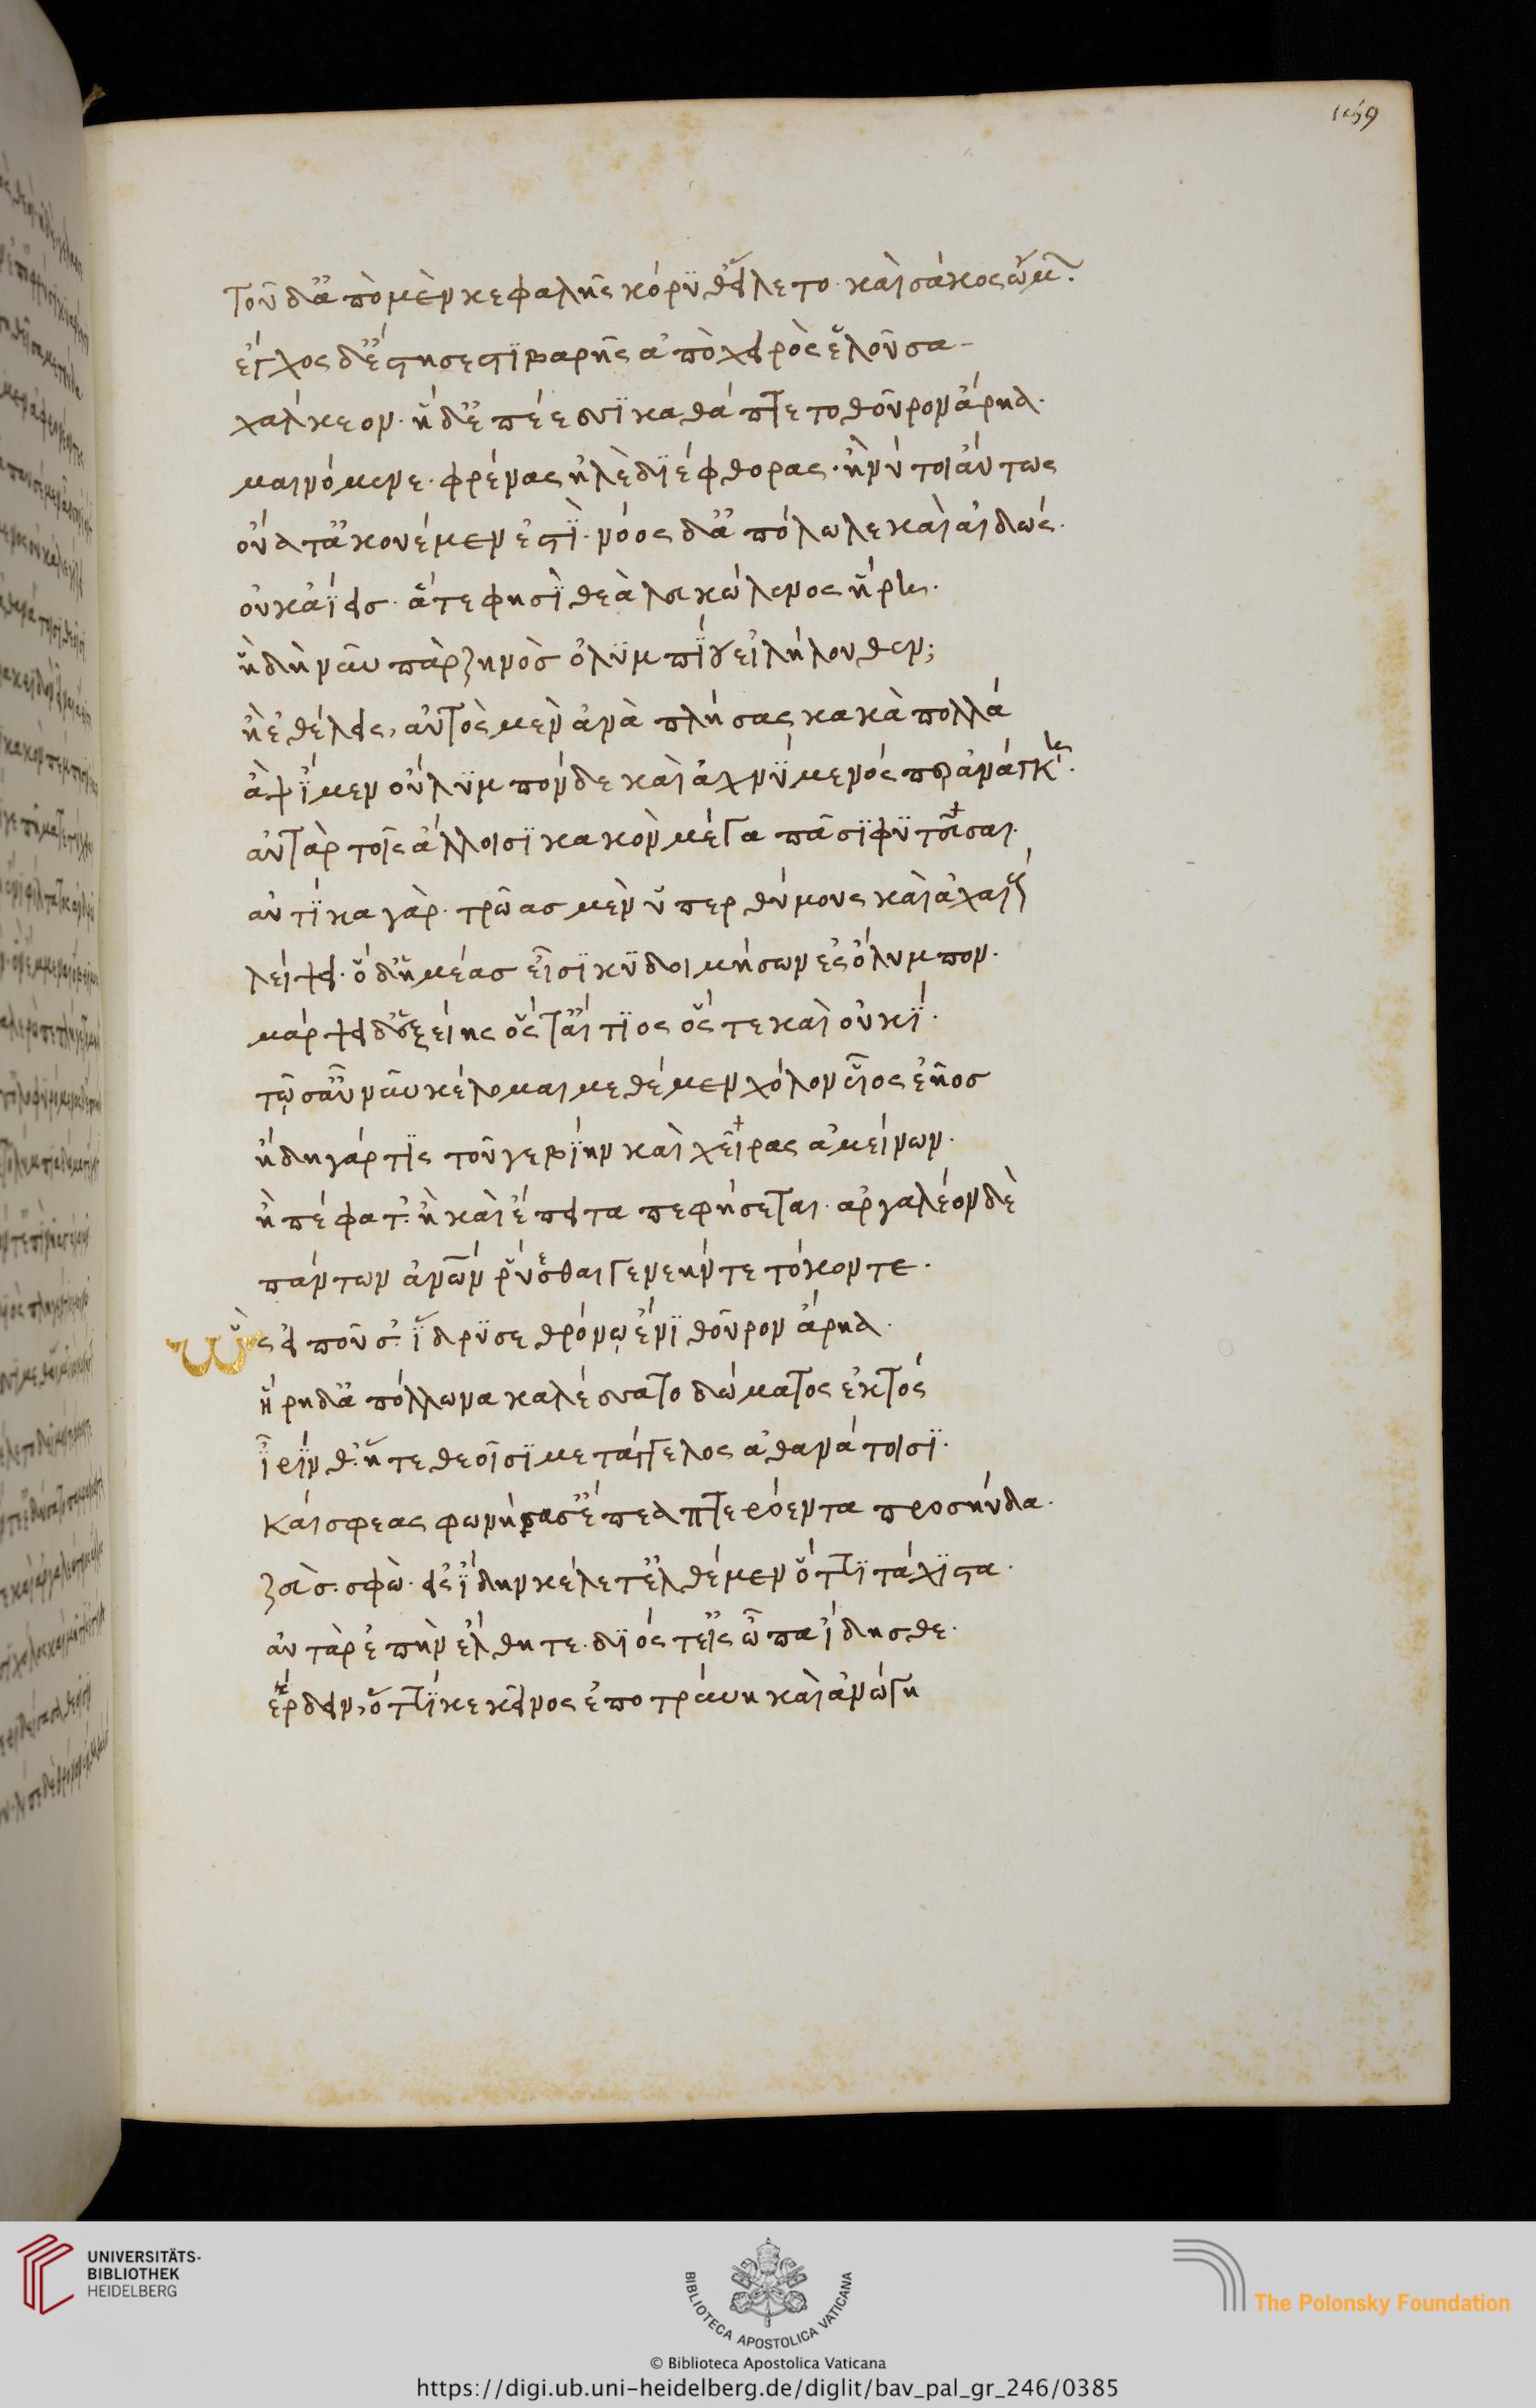 159
τοῦ δ' ἀπὸ μὲν κεφαλῆς κόρυθ' εἵλετο καὶ σάκος ὤμων.
ἔγχος δ' ἔστησε στιβαρῆς ἀπὸ χειρὸς ἑλοῦσα
χάλκεον· ἡ δ' ἐπέεσσι καθάπτετο θοῦρον ἄρηα.
μαινόμενε· φρένας ἠλὲ διέφθορας· ἦ νύ τοι αὔτως
οὔατ' ἀκουέμεν ἐστὶ· νόος δ' ἀπόλωλε καὶ αἰδώς.
οὐκ ἀΐεις· ἅ τέ φησὶ θεὰ λευκώλενος ἥρη.
ἣ δὴ νῦν πὰρ ζηνὸς ὀλυμπίου εἰλήλουθεν;
ἢ ἐθέλεις, αὐτὸς μὲν ἀναπλήσας κακὰ πολλά
ἂψ ἴμεν οὔλυμπόνδε καὶ ἀχνύμενός περ ἀνάγκη.
αὐτὰρ τοῖς ἄλλοισι κακὸν μέγα πᾶσι φυτεῦσαι.
αὐτίκα γὰρ· τρῶας μὲν ὑπερθύμους καὶ ἀχαιούς
λείψει· ὃ δ' ἡμέας εἶσι κυδοιμήσων ἐς ὄλυμπον.
μάρψει δ' ἑξείης ὅς τ' αἴτιος ὅς τε καὶ οὐκί.
τῷ σ' αὖ νῦν κέλομαι μεθέμεν χόλον υἷος ἑῆος
ἤδη γάρ τις τοῦ γε βίην καὶ χεῖρας ἀμείνων.
ἢ πέφατ'· ἢ καὶ ἔπειτα πεφήσεται· ἀργαλέον δὲ
πάντων ἀνθρώπων ῥῦσθαι γενεήν τε τόκον τε.
ὣς εἰποῦσ'· ἵδρυσε θρόνῳ ἔνι θοῦρον ἄρηα.
ἥρη δ' ἀπόλλωνα καλέσσατο δώματος ἐκτός
ἶρίν θ'· ἥ τε θεοῖσι μετάγγελος ἀθανάτοισι.
καί σφεας φωνήσασ' ἔπεα πτερόεντα προσηύδα.
ζεὺς· σφὼ· εἰς ἴδην κέλετ' ἐλθέμεν ὅττι τάχιστα.
αὐτὰρ ἐπὴν ἔλθητε· διός τ' εἰς ὦπα ἴδησθε.
ἔρδειν, ὅττι κε κεῖνος ἐποτρύνη καὶ ἀνώγη
UNIVERSITÄTS-
BIBLIOTHEK
HEIDELBERG
BIBLIOTECA APOSTOLICA VATICANA
The Polonsky Foundation
© Biblioteca Apostolica Vaticana
https://digi.ub.uni-heidelberg.de/diglit/bav_pal_gr_246/0385